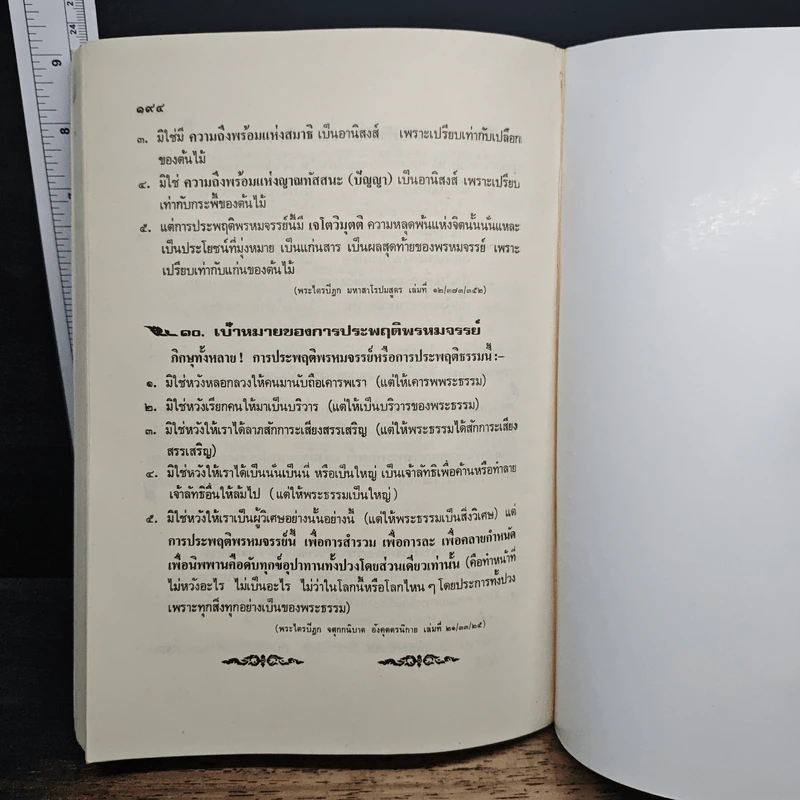 ๑๙๔
๓. มิใช่มี ความถึงพร้อมแห่งสมาธิ เป็นอานิสงส์ เพราะเปรียบเท่ากับเปลือก
ของต้นไม้
๔. มิใช่ ความถึงพร้อมแห่งญาณทัสสนะ (ปัญญา) เป็นอานิสงส์ เพราะเปรียบ
เท่ากับกระพี้ของต้นไม้
๕. แต่การประพฤติพรหมจรรย์นี้มี เจโตวิมุตติ ความหลุดพ้นแห่งจิตนั้นนั่นแหละ
เป็นประโยชน์ที่มุ่งหมาย เป็นแก่นสาร เป็นผลสุดท้ายของพรหมจรรย์ เพราะ
เปรียบเท่ากับแก่นของต้นไม้
(พระไตรปิฎก มหาสาโรปมสูตร เล่มที่ ๑๒/๓๗๓/๓๕๒)
๑๐. เป้าหมายของการประพฤติพรหมจรรย์
ภิกษุทั้งหลาย! การประพฤติพรหมจรรย์หรือการประพฤติธรรมนี้ :-
๑. มิใช่หวังหลอกลวงให้คนมานับถือเคารพเรา (แต่ให้เคารพพระธรรม)
๒. มิใช่หวังเรียกคนให้มาเป็นบริวาร (แต่ให้เป็นบริวารของพระธรรม)
๓. มิใช่หวังให้เราได้ลาภสักการะเสียงสรรเสริญ (แต่ให้พระธรรมได้สักการะเสียง
สรรเสริญ)
๔. มิใช่หวังให้เราได้เป็นนั่นเป็นนี่ หรือเป็นใหญ่ เป็นเจ้าลัทธิเพื่อค้านหรือทำลาย
เจ้าลัทธิอื่นให้ล้มไป (แต่ให้พระธรรมเป็นใหญ่)
๕. มิใช่หวังให้เราเป็นผู้วิเศษอย่างนั้นอย่างนี้ (แต่ให้พระธรรมเป็นสิ่งวิเศษ) แต่
การประพฤติพรหมจรรย์นี้ เพื่อการสำรวม เพื่อการละ เพื่อคลายกำหนัด
เพื่อนิพพานคือดับทุกข์อุปาทานทั้งปวงโดยส่วนเดียวเท่านั้น (คือทำหน้าที่
ไม่หวังอะไร ไม่เป็นอะไร ไม่ว่าในโลกนี้หรือโลกไหน ๆ โดยประการทั้งปวง
เพราะทุกสิ่งทุกอย่างเป็นของพระธรรม)
(พระไตรปิฎก จตุกกนิบาต อังคุตตรนิกาย เล่มที่ ๒๑/๓๓/๒๕)
24
9
8